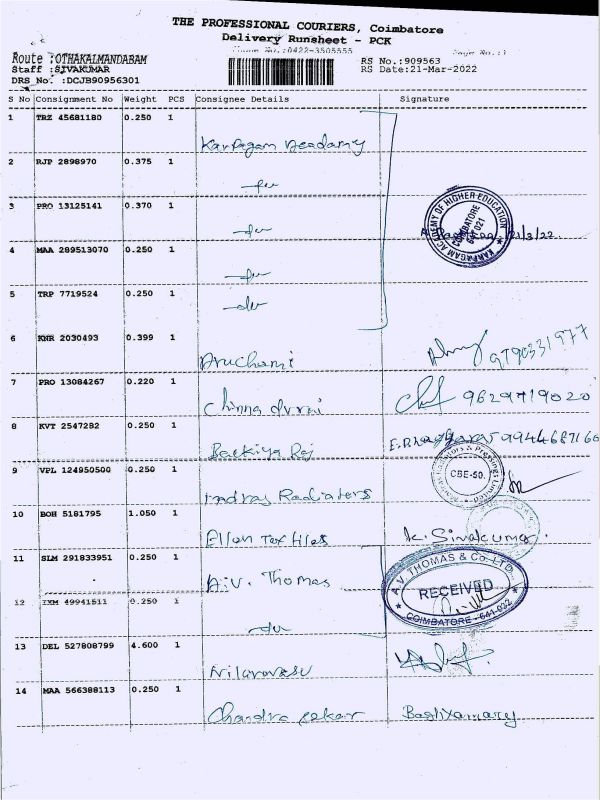 THE PROFESSIONAL COURIERS, Coimbatore
Delivery Runsheet - PCK
Phone No.:0422-3505555 Page No.:1
Route :OTHAKALMANDABAM RS No.:909563
Staff :SIVAKUMAR RS Date:21-Mar-2022
DRS No. :DCJB90956301
S No Consignment No Weight PCS Consignee Details Signature
1 TRZ 45681180 0.250 1
Karpagam Acadamy
2 RJP 2898970 0.375 1
KARPAGAM ACADEMY OF HIGHER EDUCATION
COIMBATORE
641 021
3 PRO 13125141 0.370 1
21/3/22
4 MAA 289513070 0.250 1
5 TRP 7719524 0.250 1
do
6 KNR 2030493 0.399 1
Aruchami 9790331977
7 PRO 13084267 0.220 1
Chinna durai 9629719020
8 KVT 2547282 0.250 1
Backiya Raj 9944687166
9 VPL 124950500 0.250 1
CBE-50.
Indras Radiaters
10 BOH 5181795 1.050 1
Ellen Tex tiles K. Sivakumar.
11 SLM 291833951 0.250 1
A.V. Thomas
A.V. THOMAS & Co. LTD.
RECEIVED
COIMBATORE - 641 032
12 IXM 49941511 0.250 1
do
13 DEL 527808799 4.600 1
14 MAA 566388113 0.250 1
Chandra sekar